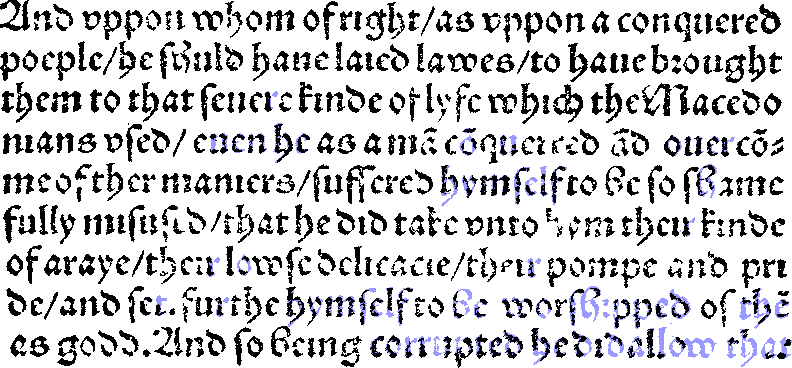 And vppon whom of right/as vppon a conquered
poeple/he shuld haue laied lawes/to haue brought
them to that seuere kinde of lyfe which the Macedo
nians vsed/ euen he as a mã cõquereed ãd ouercõ⸗
me of ther maniers/suffered hymself to be so shame
fully misused/that he did take vnto hym their kinde
of araye/their lowse delicacie/their pompe and pri
de/and set furthe hymself to be worshipped of thẽ
as godd. And so being corrupted he did allow that